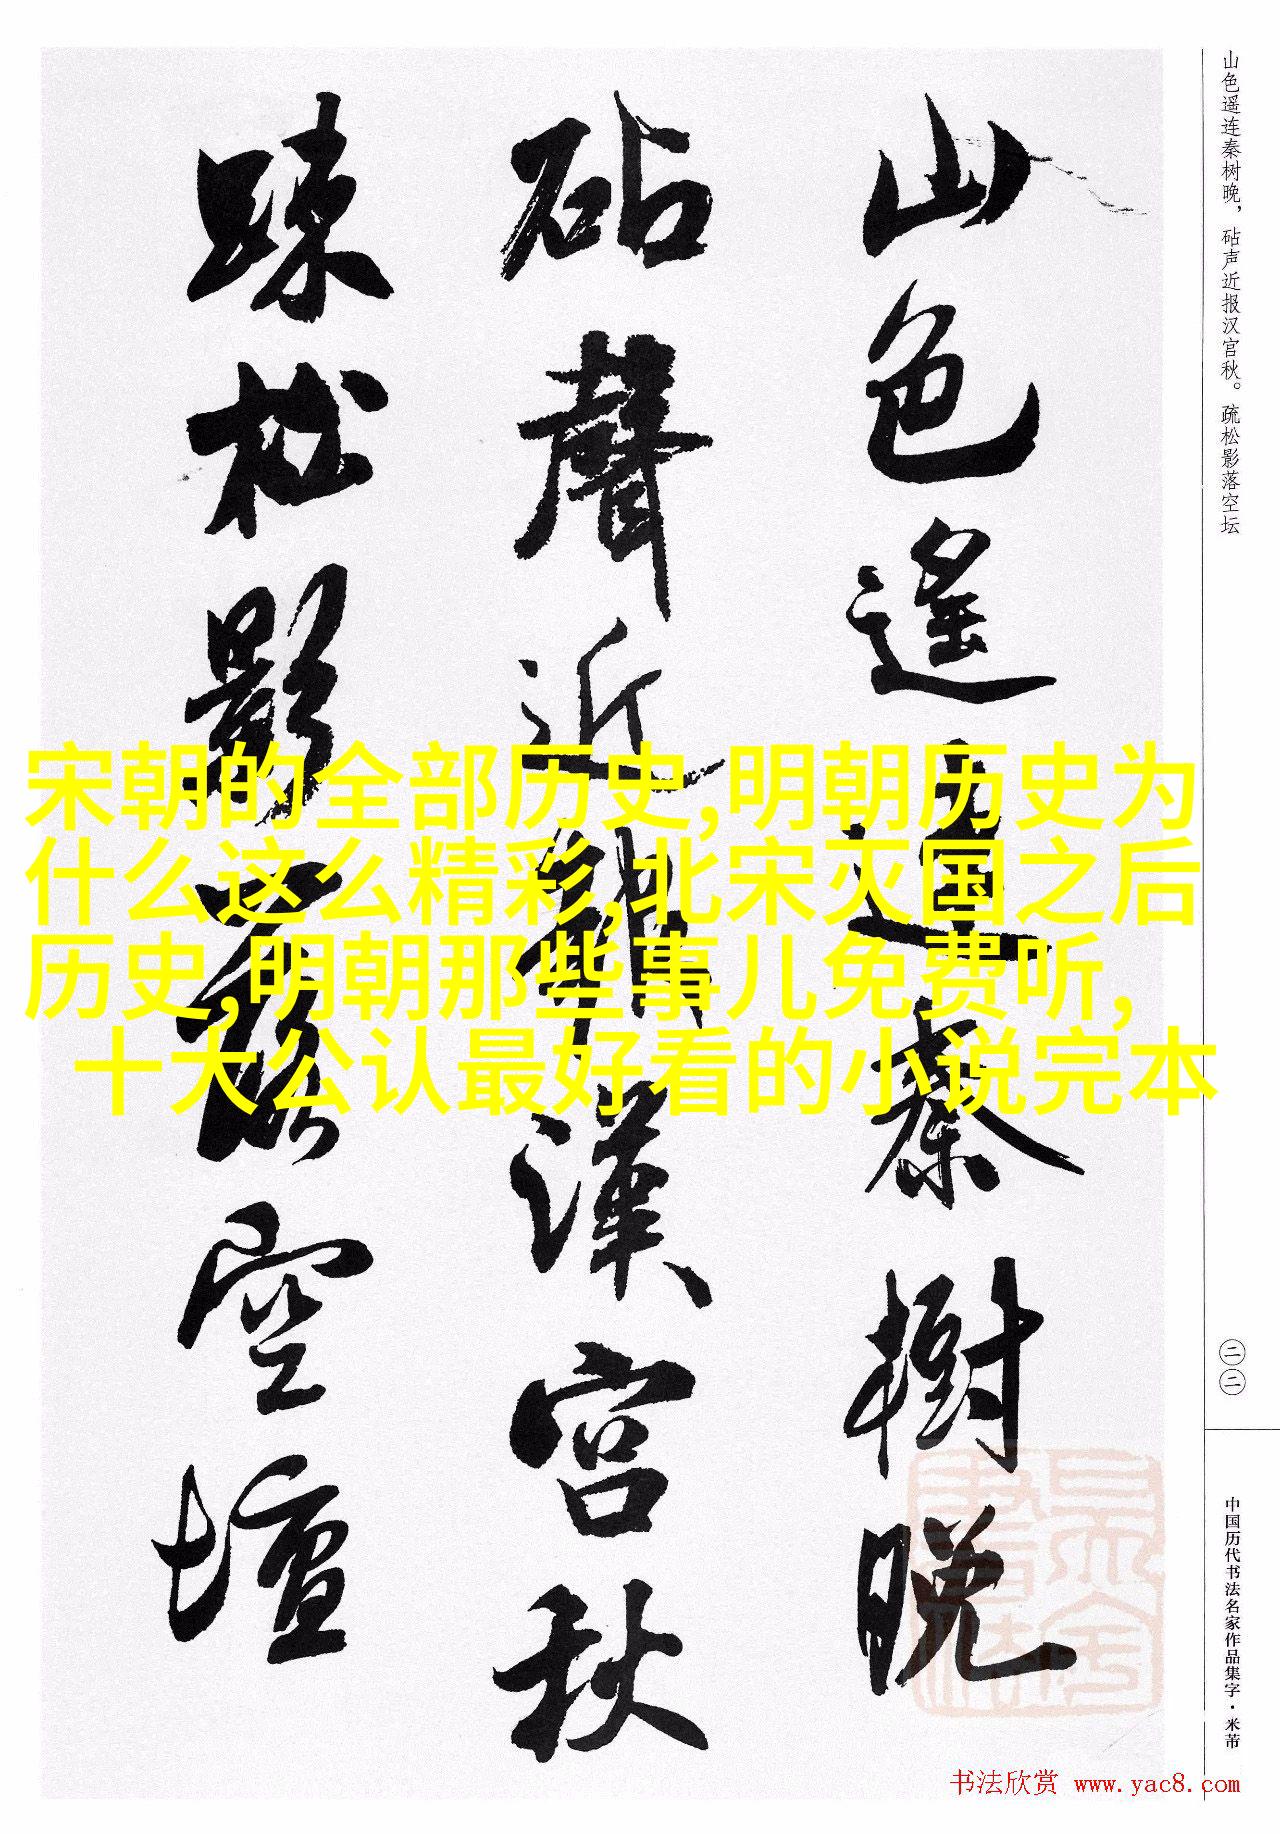 山色遥连秦树晚，砧声近报汉宫秋。疏松影落空坛
山色遥連秦樹晚
砧聲近報漢宮秋
踈松影落空壇
宋朝的全部历史,明朝历史为
什么这么精彩,北宋灭国之后
历史,明朝那些事儿免费听,
十大公认最好看的小说完本
二二
中国历代书法名家作品集字·米芾
书法欣赏 www.yac8.com